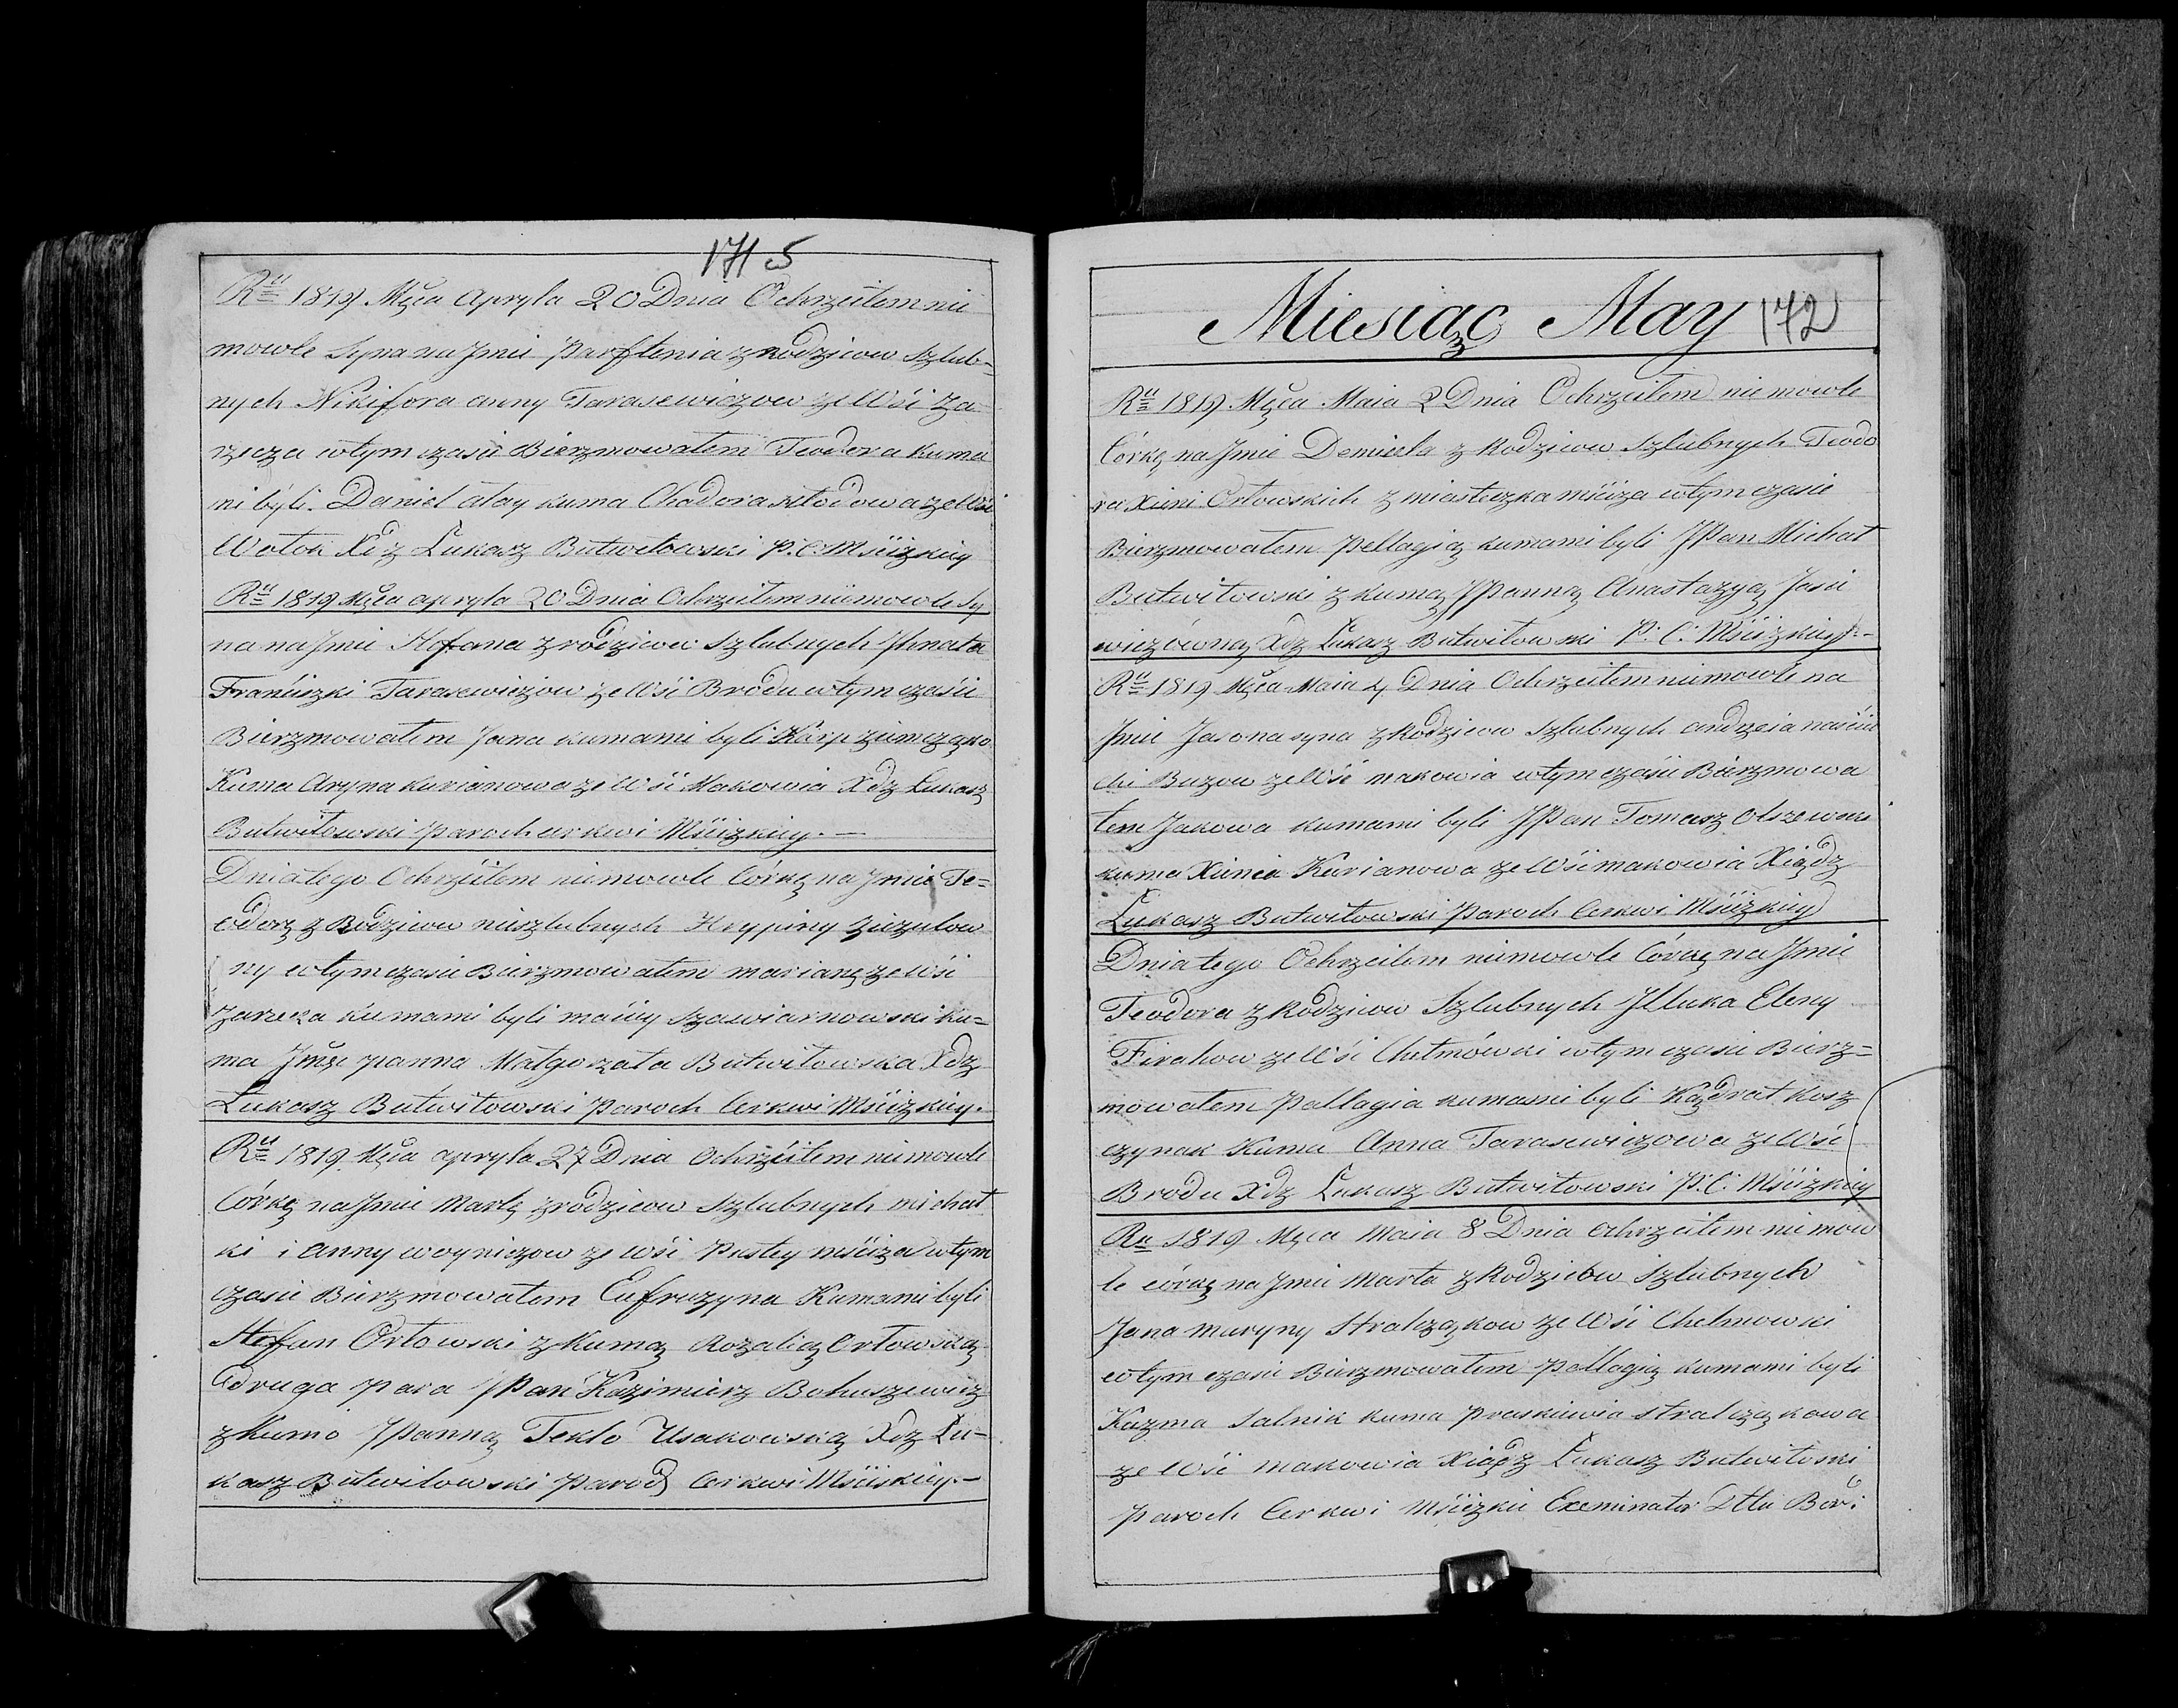 171 5
Ru 1819 Mca Apryla 20 Dnia Ochrzciłem nie
mowle Syna na Jmie Parftenia z Rodzicow Szlub=
nych Nikifora Anny Tarasewiczow ze Wśi Za
rzecza wtym czasie Bierzmowałem Teodora Kuma
mi byli. Daniel kuma Chodora ze Wśi
Wołok Xdz Łukasz Butwiłowski P. C. Mściżkiey
Ru 1819 Mca apryla 20 Dnia Ochrzciłem niemowle Sy
na na Jmie z rodzicow Szlubnych Jhnata
Franciszki Tarasewiczow ze Wśi Brodu wtym czasie
Bierzmowałem Jana kumami byli Karp
Kuma Aryna Kurianowa ze Wśi Makowia Xdz Łukasz
Butwiłowski Paroch cerkwi Mściżkiey. —
Dnia tego Ochrzciłem niemowle Córkę na Jmie Te=
odorę z Rodzicow nieszlubnych Hrypiny
ny wtym czasie Bierzmowałem mariannę ze Wśi
Zarzecza kumami byli maciey Szawiarnowski ku=
ma Jmśc panna Małgorzata Butwiłowska Xdz
Łukasz Butwiłowski Paroch Cerkwi Mściżkiey.
Ru 1819 Mca apryla 27 Dnia Ochrzciłem niemowle
Córkę na Jmie Martę z rodzicow Szlubnych michał
ki i Anny woyniczow ze wśi Pustey mściża wtym
czasie Bierzmowałem Eufrozyna Kumami byli
Stefan Orłowski z Kumą Rozalią Orłowską
druga para JPan Kazimierz Bohuszewicz
z Kumo JPanną Teklo Usakowską Xdz Łu=
kasz Butwiłowski Paroch Cerkwi Mściskiey. —
Miesiąc May 172
Ru 1819 Mca Maia 2 Dnia Ochrzciłem niemowle
Córkę na Jmie z Rodzicow Szlubnych Teodo
ra Xieni Orłowskich z miasteczka mściża wtym czasie
Bierzmowałem Pellagią kumami byli JPan Michał
Butwiłowski z kumą JPanną Anastazyą Jasie
wiczówną Xdz Łukasz Butwiłowski P. C. Mściżkiey. -
Ru 1819 Mca Maia 4 Dnia Ochrzciłem niemowle na
Jmie Jasona syna z Rodzicow Szlubnych andrzeia naścia
chi Buzow ze Wśi makowia wtym czasie Bierzmowa
łem Jakowa kumami byli JPan Tomasz Olszewski
kuma Xienia Kurianowa ze Wśi makowia Xiądz
Łukasz Butwiłowski Paroch Cerkwi Mściżkiey
Dnia tego Ochrzciłem niemowle Córkę na Jmie
Teodora z Rodzicow Szlubnych Jlluka Eleny
Firahow ze Wśi Chełmówki wtym czasie Bierz=
mowałem Pallagia kumami byli Kądrat Kosz
czynak Kuma Anna Tarasewiczowa ze Wśi
Brodu Xdz Łukasz Butwiłowski P. C. Mściżkiey
Ru 1819 Mca Maia 8 Dnia Ochrzciłem niemow
le córkę na Jmie Marta z Rodzicow Szlubnych
Jana Maryny Strałcząkow ze Wśi Chelmowki
wtym czasie Bierzmowałem Pellagię kumami byli
Kuzma Salnik kuma Praskiewia strałcząkowa
ze Wśi makowia Xiądz Łukasz Butwiłoski
Paroch Cerkwi Mściżkie Exeminator Dttu Bor: